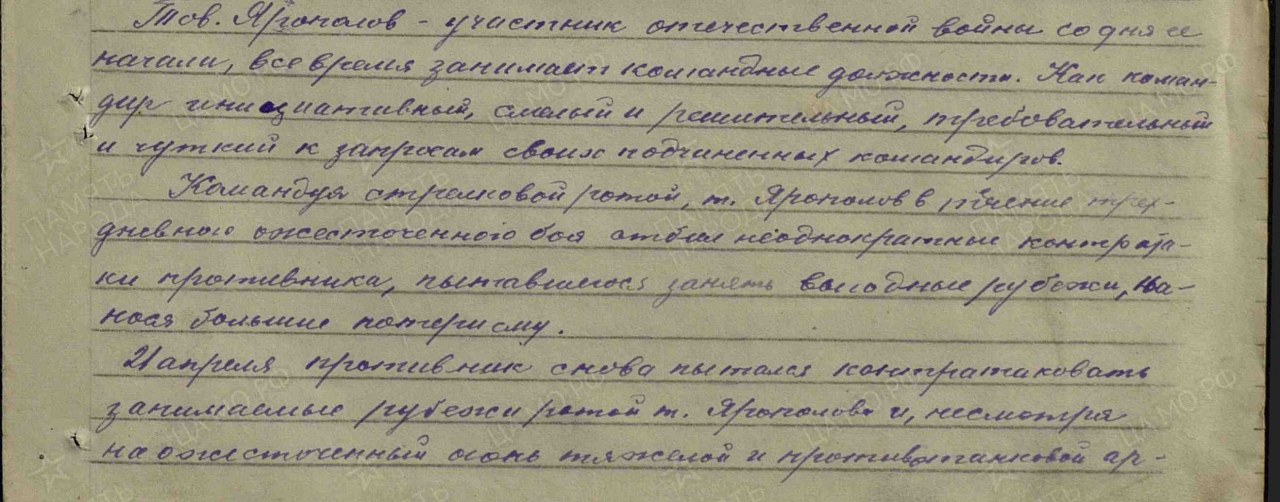 Тов. Ярополов - участник отечественной войны со дня ее
начала, все время занимает командные должности. Как коман-
дир инициативный, смелый и решительный, требовательный
и чуткий к запросам своих подчиненных командиров.
Командуя стрелковой ротой, т. Ярополов в течение трех-
дневного ожесточенного боя отбил неоднократные контрата-
ки противника, пытавшегося занять выгодные рубежи, на-
нося большие потери ему.
21 апреля противник снова пытался контратаковать
занимаемые рубежи ротой т. Ярополова и, несмотря
на ожесточенный огонь тяжелой и противотанковой ар-